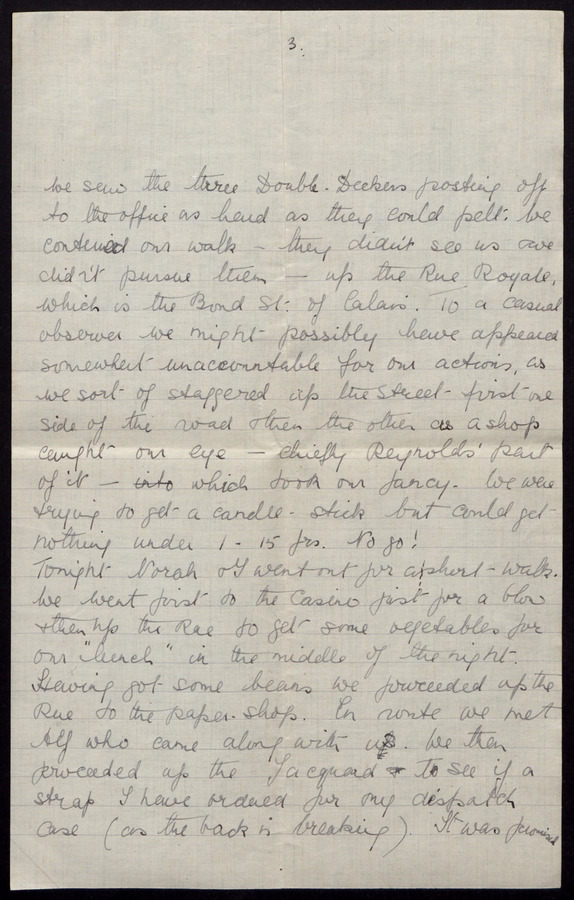 3.
We saw the three Double-Deckers posting off
to the office as hard as they could pelt. We
continued our walk - they didn't see us & we
didn't pursue them — up the Rue Royale,
which is the Bond St: of Calais. To a casual
observer we might possibly have appeared
somewhat unaccountable for our actions, as
we sort of staggered up the street - first one
side of the road & then the other as a shop
caught our eye — chiefly Reynolds' part
of it — into which took our fancy. We were
trying to get a candle-stick but could get
nothing under 1 - 15 frs. No go!
Tonight Norah & I went out for a short walk.
We went first to the Casino just for a blow
& then up the Rue to get some vegetables for
our "lunch" in the middle of the night.
Having got some beans we proceeded up the
Rue to the paper-shop. En route we met
Alf who came along with us. We then
proceeded up the Jacquard to see if a
strap I have ordered for my dispatch
case (as the back is breaking). It was promised